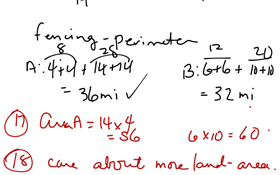 fencing - perimeter
8 28 12 20
A: 4+4 + 14+14 B: 6+6 + 10+10
= 36mi ✓ = 32 mi
17 Area A = 14 x 4 6 x 10 = 60
= 56
18 care about more land - area.